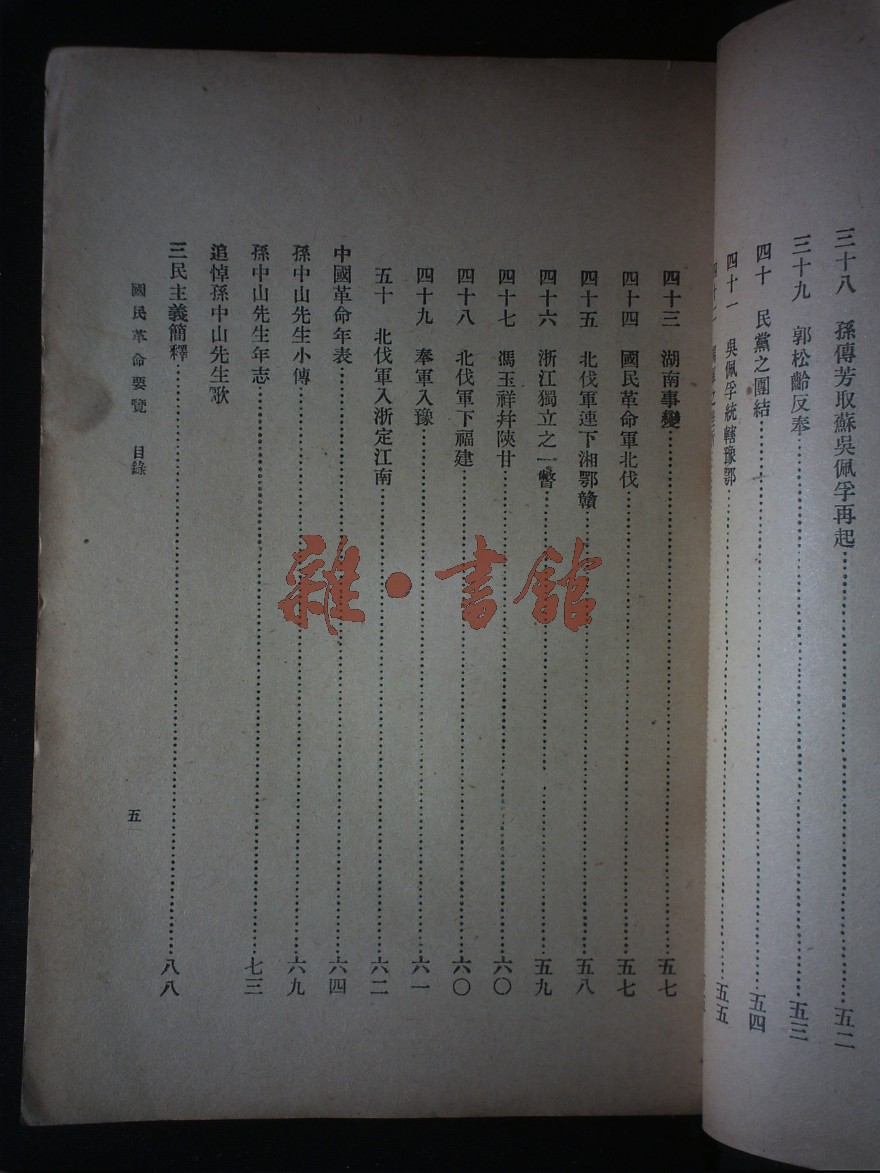 三十八　孫傳芳取蘇吳佩孚再起……五二
三十九　郭松齡反奉……五三
四十　民黨之團結……五四
四十一　吳佩孚統轄豫鄂……五五
四十三　湖南事變……五七
四十四　國民革命軍北伐……五七
四十五　北伐軍連下湘鄂贛……五八
四十六　浙江獨立之一瞥……五九
四十七　馮玉祥幷陝甘……六〇
四十八　北伐軍下福建……六〇
四十九　奉軍入豫……六一
五十　北伐軍入浙定江南……六二
中國革命年表……六四
孫中山先生小傳……六九
孫中山先生年志……七三
追悼孫中山先生歌
三民主義簡釋……八八
國民革命要覽　目錄　五
雜·書館